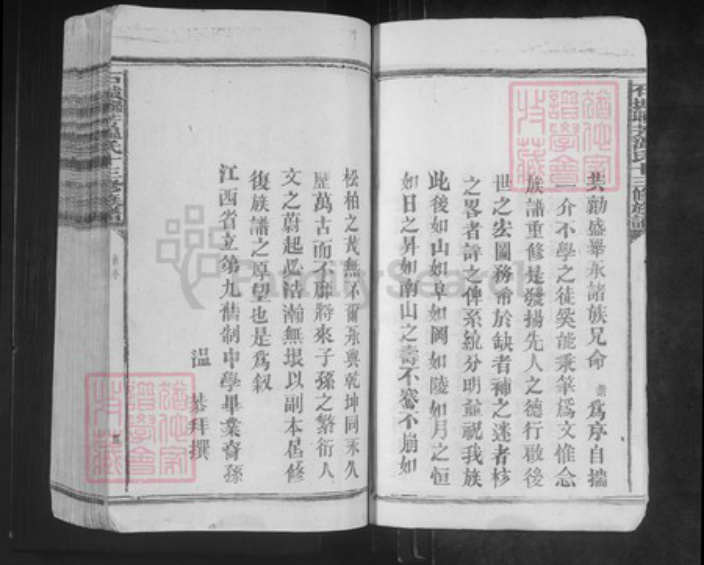 共勷盛舉永諸族兄命 為序自揣
一介不學之徒奚能秉筆為文惟念
族譜重修是發揚先人之德行啟後
世之宏圖務希於缺者補之迷者核
之畧者詳之俾系統分明並祝我族
此後如山如阜如岡如陵如月之恒
如日之昇如南山之壽不騫不崩如
松柏之茂無不爾承與乾坤同永久
歷萬古而不靡將來子孫之繁衍人
文之蔚起必浩瀚無垠以副本屆修
復族譜之厚望也是為叙
江西省立第九舊制中學畢業裔孫
溫 拜撰
FamilySearch